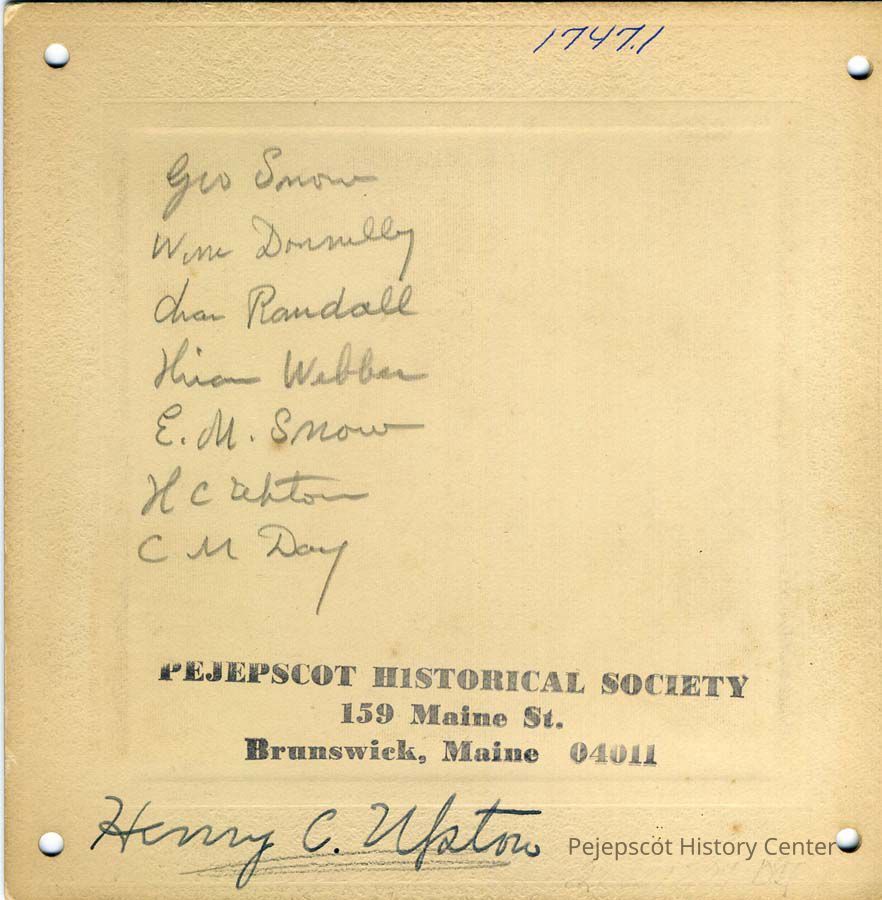 1747.1
Geo Snow
Wm Donnelly
Chas Randall
Hiram Webber
E. M. Snow
H C Upton
C M Day
PEJEPSCOT HISTORICAL SOCIETY
159 Maine St.
Brunswick, Maine 04011
Henry C. Upton
Pejepscot History Center